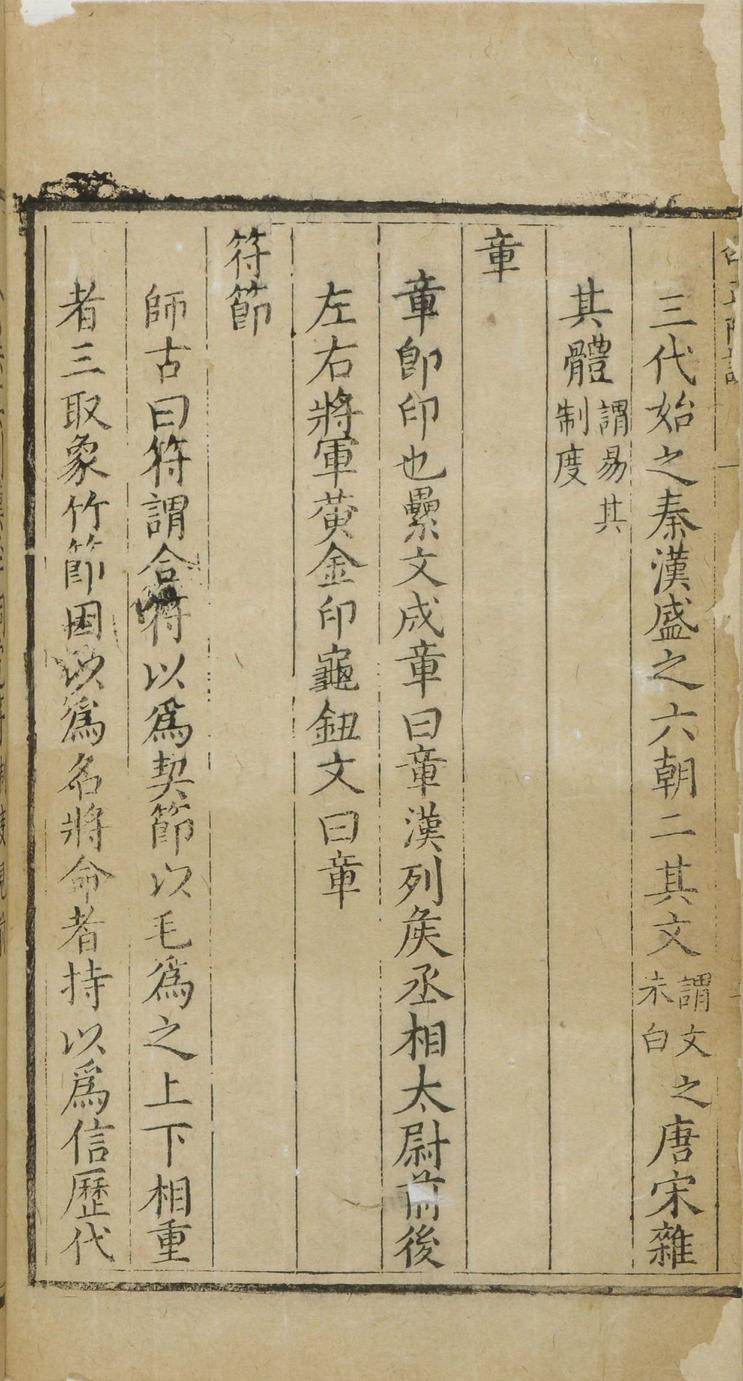 三代始之秦漢盛之六朝二其文謂文之朱白唐宋雜
其體謂易其制度
章
章卽印也纍文成章曰章漢列侯丞相太尉前後
左右將軍黃金印龜鈕文曰章
符節
師古曰符謂合符以爲契節以毛爲之上下相重
者三取象竹節因以爲名將命者持以爲信歷代